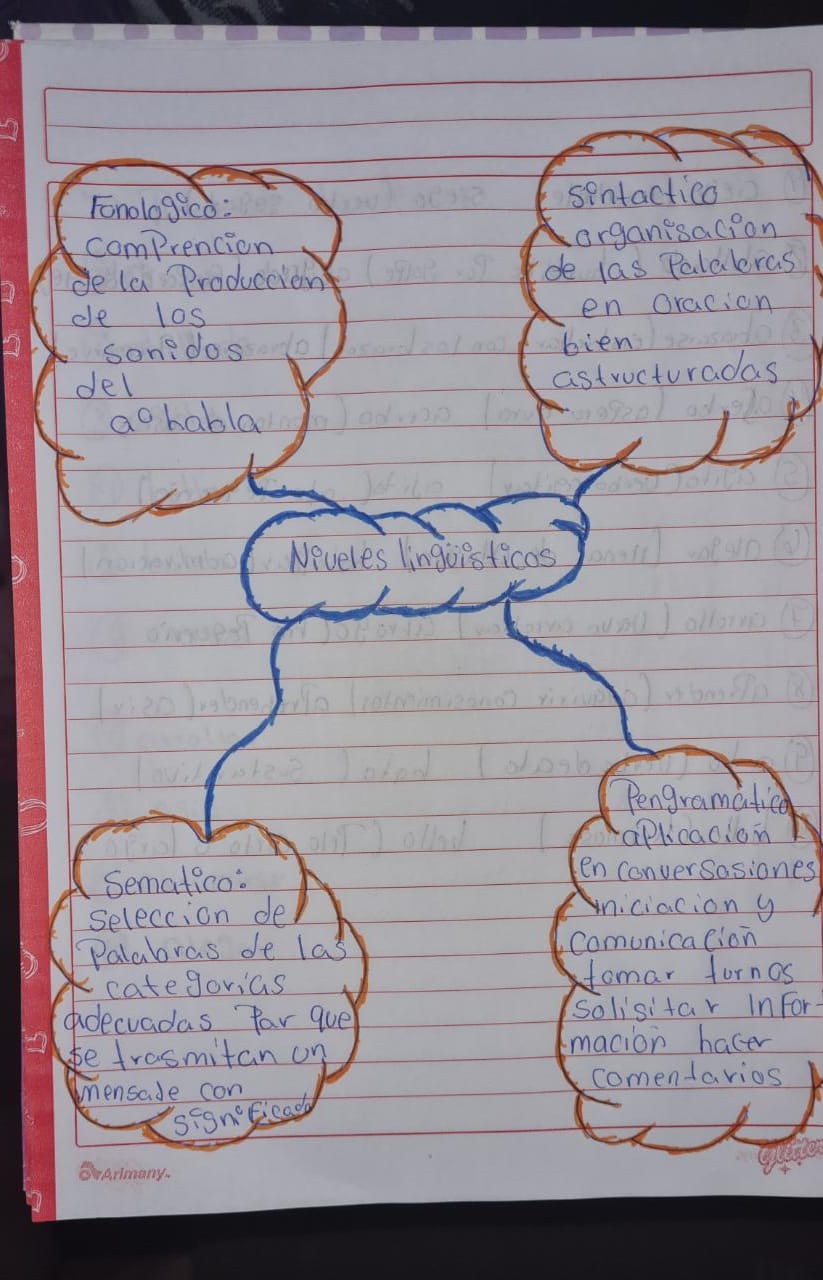 Fonologico:
comPrencion
de la Produccion
de los
sonidos
del
habla
sintactico
organisacion
de las Palabras
en oracion
bien
astructuradas
Niveles lingüisticos
Sematico:
seleccion de
Palabras de las
categorias
adecuadas Par que
se trasmitan un
mensaje con
significado
Pengramatico
aplicación
en conversasiones
iniciacion y
comunicación
tomar turnos
solisitar infor-
mación hacer
comentarios
Arimany
glitter